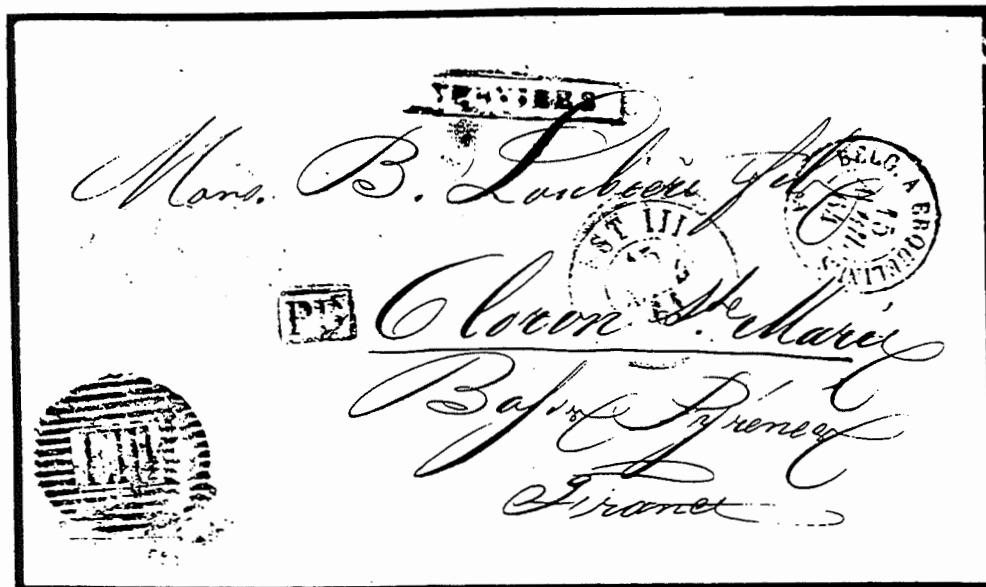 VERVIERS
Mons. B. Loubière fils
BELG. A ERQUELINES
15
EST III
PD
Oloron Ste. Marie
Basses Pyrénées
France